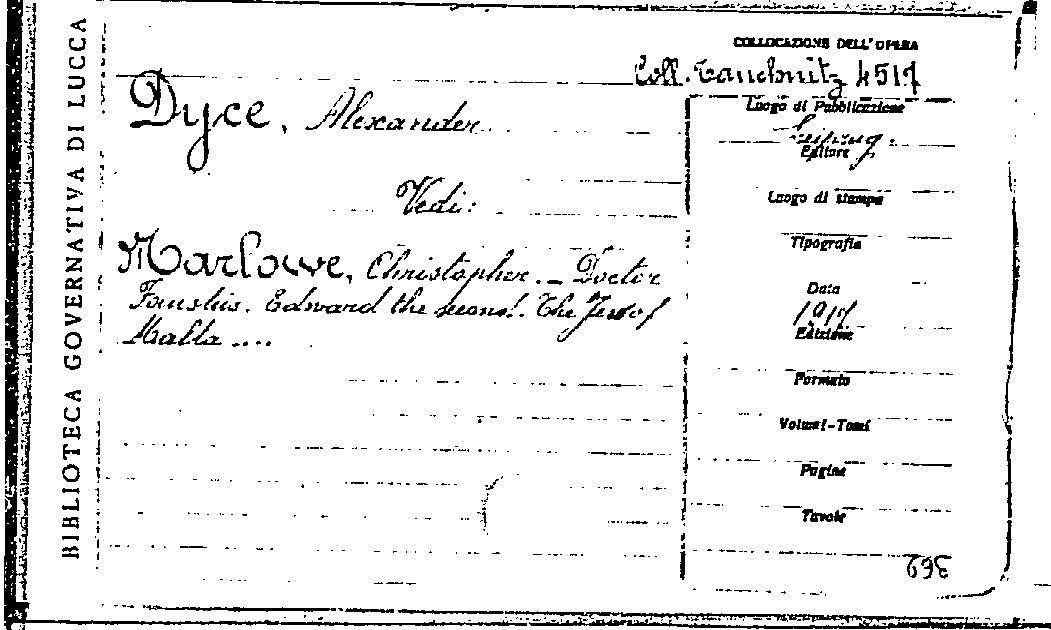 BIBLIOTECA GOVERNATIVA DI LUCCA
COLLOCAZIONE DELL'OPERA
Coll. Tauchnitz 4517
Dyce, Alexander
Vedi:
Marlowe, Christopher. _ Doctor
Faustus. Edward the second. The Jew of
Malta ....
Luogo di Pubblicazione
Leipzig.
Editore
Luogo di stampa
Tipografia
Data
1917
Edizione
Formato
Volumi-Tomi
Pagine
Tavole
362